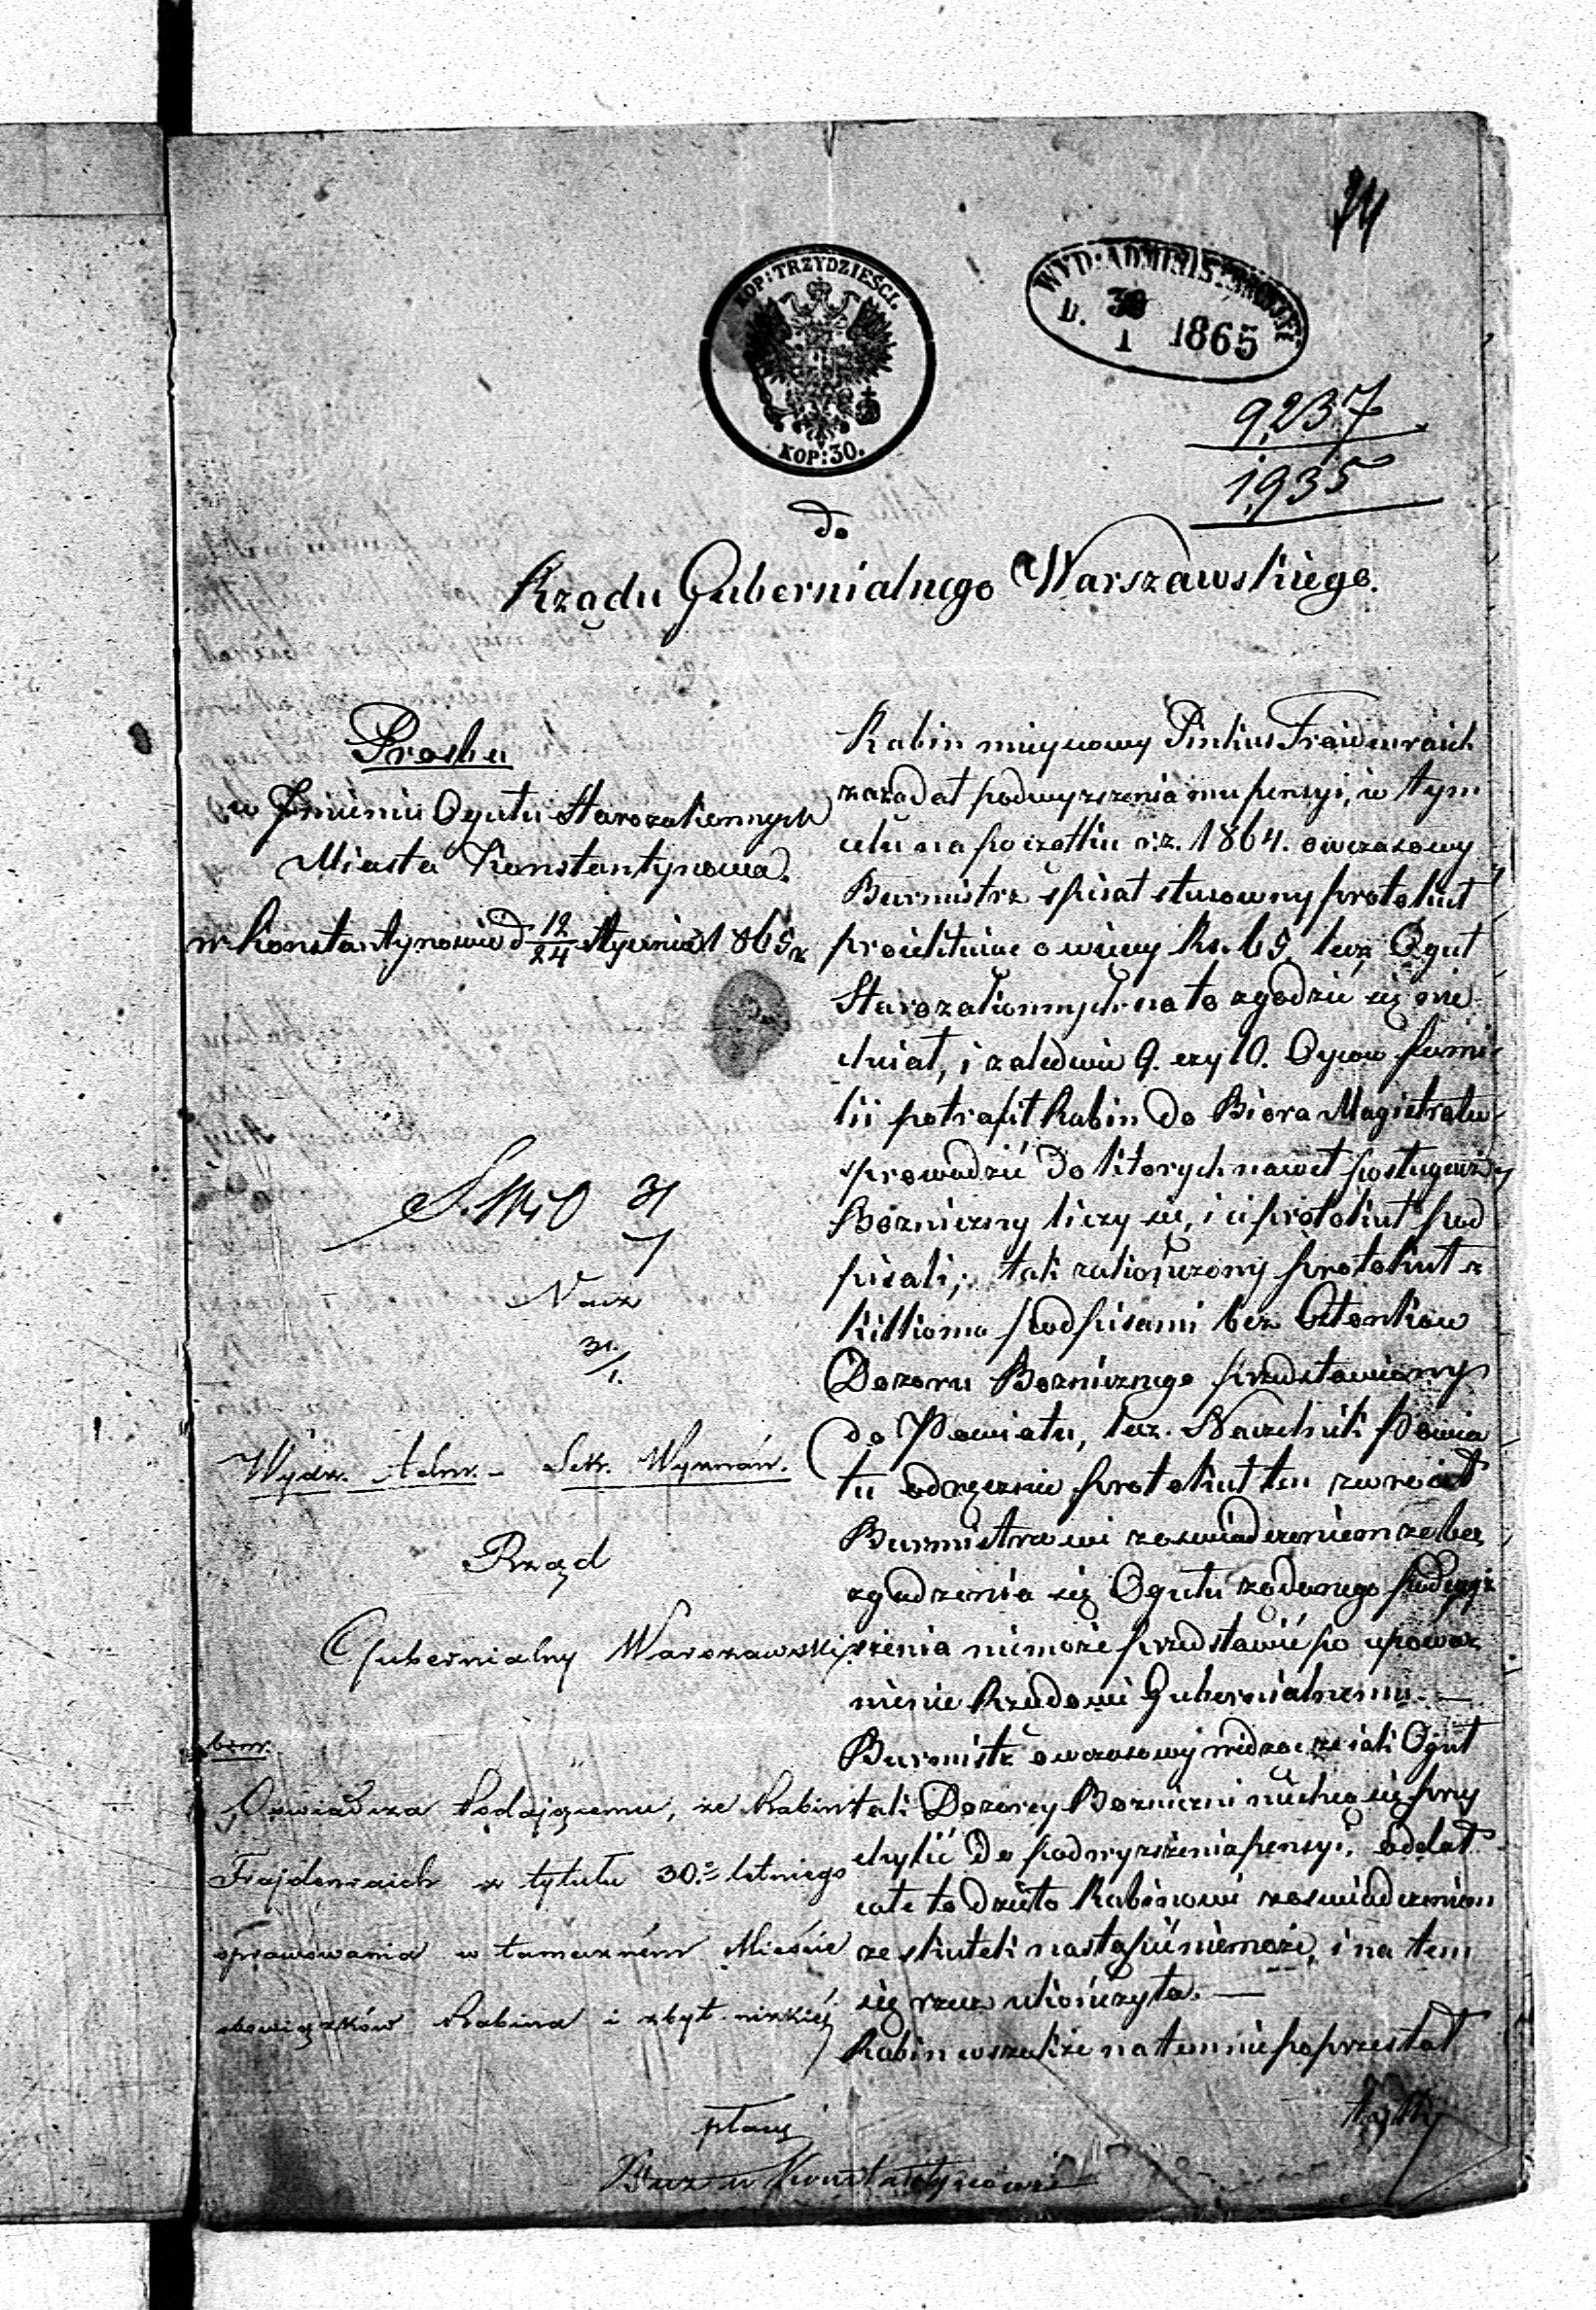 74
KOP: TRZYDZIEŚCI.
KOP: 30.
WYD: ADMINISTRACYJ:
D. 30
1 1865
9,237
1,935
do
Rządu Gubernialnego Warszawskiego.
Prosba
w Jmieniu Ogułu Starozakonnych
Miasta Konstantynowa.
w Konstantynowie d 12/24 Stycznia 1865 r
31
1
Nacz
31/1.
Wydz. Adm. - Sek. Wyznań.
Rząd
Gubernialny Warszawski.
Oświadcza Podającemu, że Rabin
Frajdenraich z tytułu 30.o letniego
sprawowania w tamecznem Mieście
obowiązków Rabina i zbyt nizkiéj
płacy
Bur. w Konstantynowie
Rabin mieyscowy Pinkus Fraidenraich
zażądał podwyższenia mu pensyi, w tym
celu na początku r.z. 1864. owczasowy
Burmistrz spisał stosowny protokuł
projektując o więcey Rs. 65, lecz Oguł
Starozakonnych na to zgodzić się nie
chciał, i zaledwie 9. czy 10. Oycow fami-
lii potrafił Rabin do Biora Magistratu
sprowadzić do ktorych nawet posługacz
Bozniczny liczy się, i ci protokuł pod
pisali; tak zakończony protokuł z
kilkoma podpisami bez Członkow
Dozoru Boznicznego przedstawiony
do Powiatu, lecz Naczelnik Powia
tu odręcznie protokuł ten zwrócił
Burmistrowi z oswiadczeniem ze bez
zgodzenia się Ogułu żądanego podwyż
szenia niemoże przedstawić po upoważ
nienie Rządowi Gubernialnemu. —
Burmistrz owczasowy widząc że jak Oguł
tak Dozorcy Bozniczni niechcą się przy
chylić do podwyższenia pensyi, oddał
całe to dzieło Rabinowi z oswiadczeniem
ze skutek nastąpić niemoże, i na tem
się rzecz ukończyła. —
Rabin wszakże na tem nie poprzestał